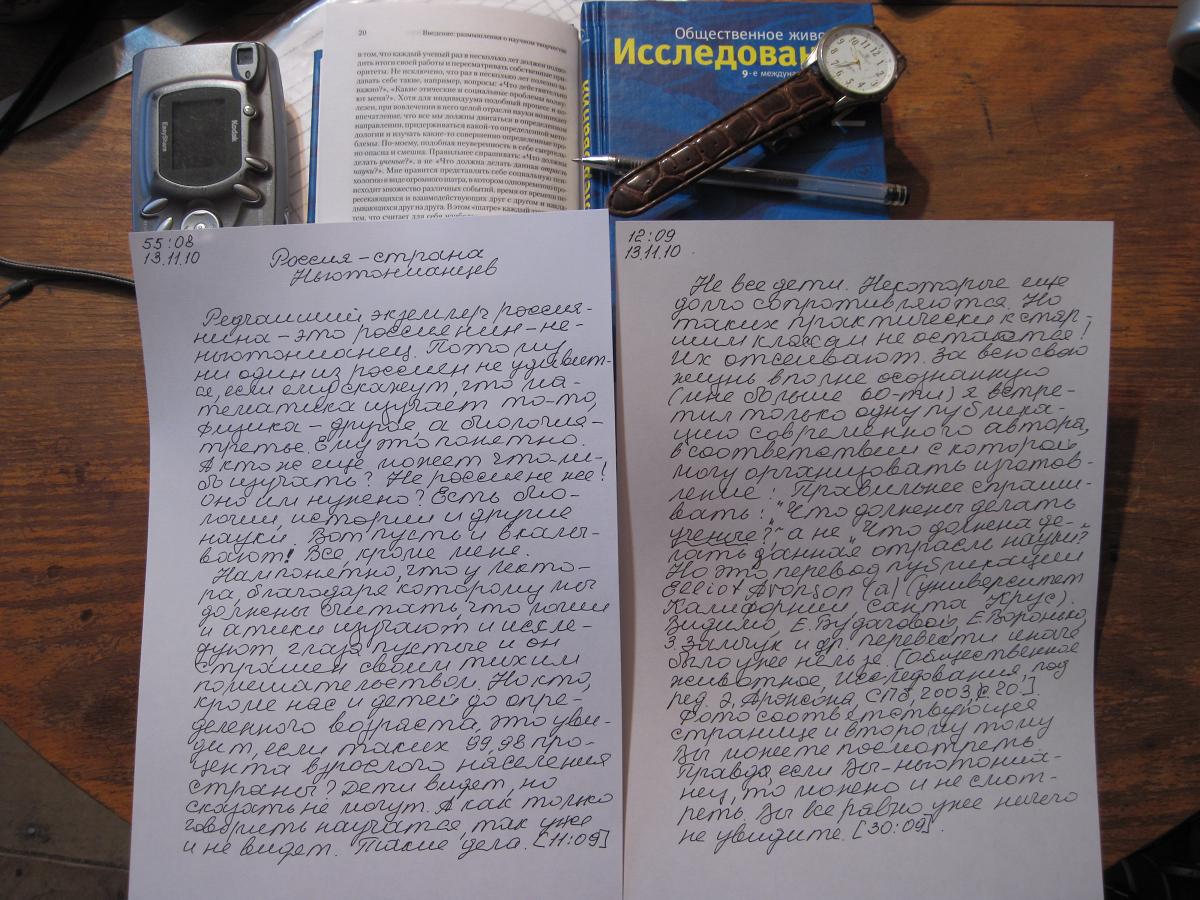 20 Введение: размышления о научном творчестве
в том, что каждый ученый раз в несколько лет должен подво-
дить итоги своей работы и пересматривать собственные при-
оритеты. Не исключено, что раз в несколько лет полезно за-
давать себе такие, например, вопросы: «Что действительно
важно?», «Какие этические и социальные проблемы волну-
ют меня?». Хотя для индивидуума подобный процесс и по-
лезен, при вовлечении в него целой отрасли науки возникает
впечатление, что все мы должны двигаться в определенном
направлении, придерживаться какой-то определенной мето-
дологии и изучать какие-то совершенно определенные про-
блемы. По-моему, подобная неуверенность в себе смертель-
но опасна и смешна. Правильнее спрашивать: «Что должны
делать ученые?», а не «Что должна делать данная отрасль
науки?». Мне нравится представлять себе социальную пси-
хологию в виде огромного шатра, в котором одновременно про-
исходит множество различных событий, время от времени пе-
ресекающихся и взаимодействующих друг с другом и накла-
дывающихся друг на друга. В этом «шатре» каждый
тем, что считает для себя наиболее
Общественное живо
Исследован
9-е междуна
Kodak
EasyShare
12 1 2 3 4 5 6 7 8 9 10 11
55:08
13.11.10
Россия – страна
Ньютонианцев
Редчайший экземпляр россия-
нина – это россиянин – не-
ньютонианец. Потому
ни один из россиян не удивляет-
ся, если ему скажут, что ма-
тематика изучает то-то,
физика – другое, а биология –
третье. Ему это понятно.
А кто же еще может что-ли-
бо изучать? Не россияне же!
Оно им нужно? Есть био-
логии, истории и другие
науки. Вот пусть и вкалы-
вают! Все, кроме меня.
Нам понятно, что у лекто-
ра, благодаря которому мы
должны считать, что логии
и атики изучают и иссле-
дуют, глаза пустые и он
страшен своим тихим
помешательством. Но кто,
кроме нас и детей до опре-
деленного возраста, это уви-
дит, если таких 99,98 про-
цента взрослого населения
страны? Дети видят, но
сказать не могут. А как только
говорить научатся, так уже
и не видят. Такие дела. [11:09]
12:09
13.11.10
Не все дети. Некоторые еще
долго сопротивляются. Но
таких практически к стар-
шим классам не остается!
Их отсеивают. За всю свою
жизнь вполне осознанную
(мне больше 60-ти) я встре-
тил только одну публика-
цию современного автора,
в соответствии с которой
могу организовать изготов-
ление: Правильнее спраши-
вать: "Что должны делать
ученые?" а не "Что должна де-
лать данная отрасль науки?"
Но это перевод публикации
Elliot Aronson (а) (университет
Калифорнии, Санта Круз).
Видимо, Е. Будаговой, Е. Воронько,
З. Замчук и др. перевести иначе
было уже нельзя. [Общественное
животное, исследования, под
ред. Э. Аронсона, СПб, 2003, с 20.].
Фото соответствующее
странице и второму тому
Вы можете посмотреть.
Правда, если Вы – ньютониа-
нец, то можно и не смот-
реть. Вы все равно уже ничего
не увидите. [30:09].